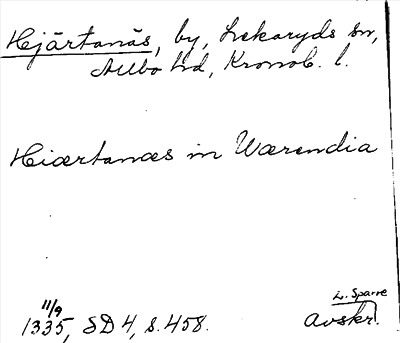 Hjärtanäs, by, Lekaryds sn,
Allbo hd, Kronob. l.
Hiærtanæs in Wærendia
11/9
L. Sparre
1335, SD 4, s. 458.
Avskr.